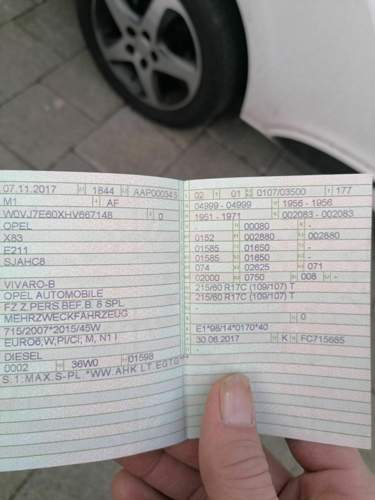 07.11.2017 1844 AAP000343
M1 AF
W0VJ7E60XHV667148 0
OPEL
X83
E211
SJAHC8
VIVARO-B
OPEL AUTOMOBILE
FZ.Z.PERS.BEF.B. 8 SPL
MEHRZWECKFAHRZEUG
715/2007*2015/45W
EURO6;W;PI/CI; M, N1 I
DIESEL
0002 36W0 01598
S.1:MAX.S-PL.*WW.AHK LT.EGTG
02 01 0107/03500 177
04999 - 04999 1956 - 1956
1951 - 1971 002083 - 002083
00080 -
0152 002880 002880
01585 01650 -
01585 01650 -
074 02625 071
02000 0750 008 -
215/60 R17C (109/107) T
215/60 R17C (109/107) T
0
E1*98/14*0170*40
30.06.2017 K FC715685
-